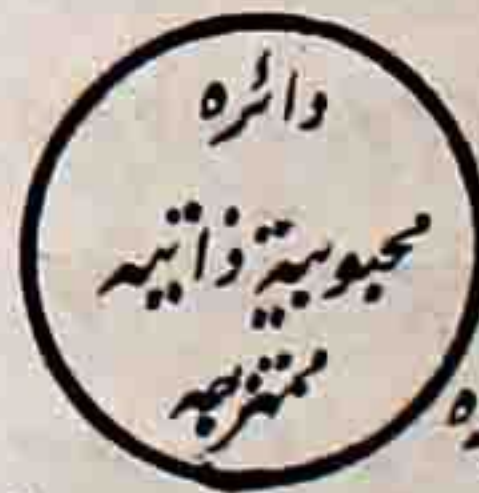 دائره
محبوبية ذاتيه
ممتزجه